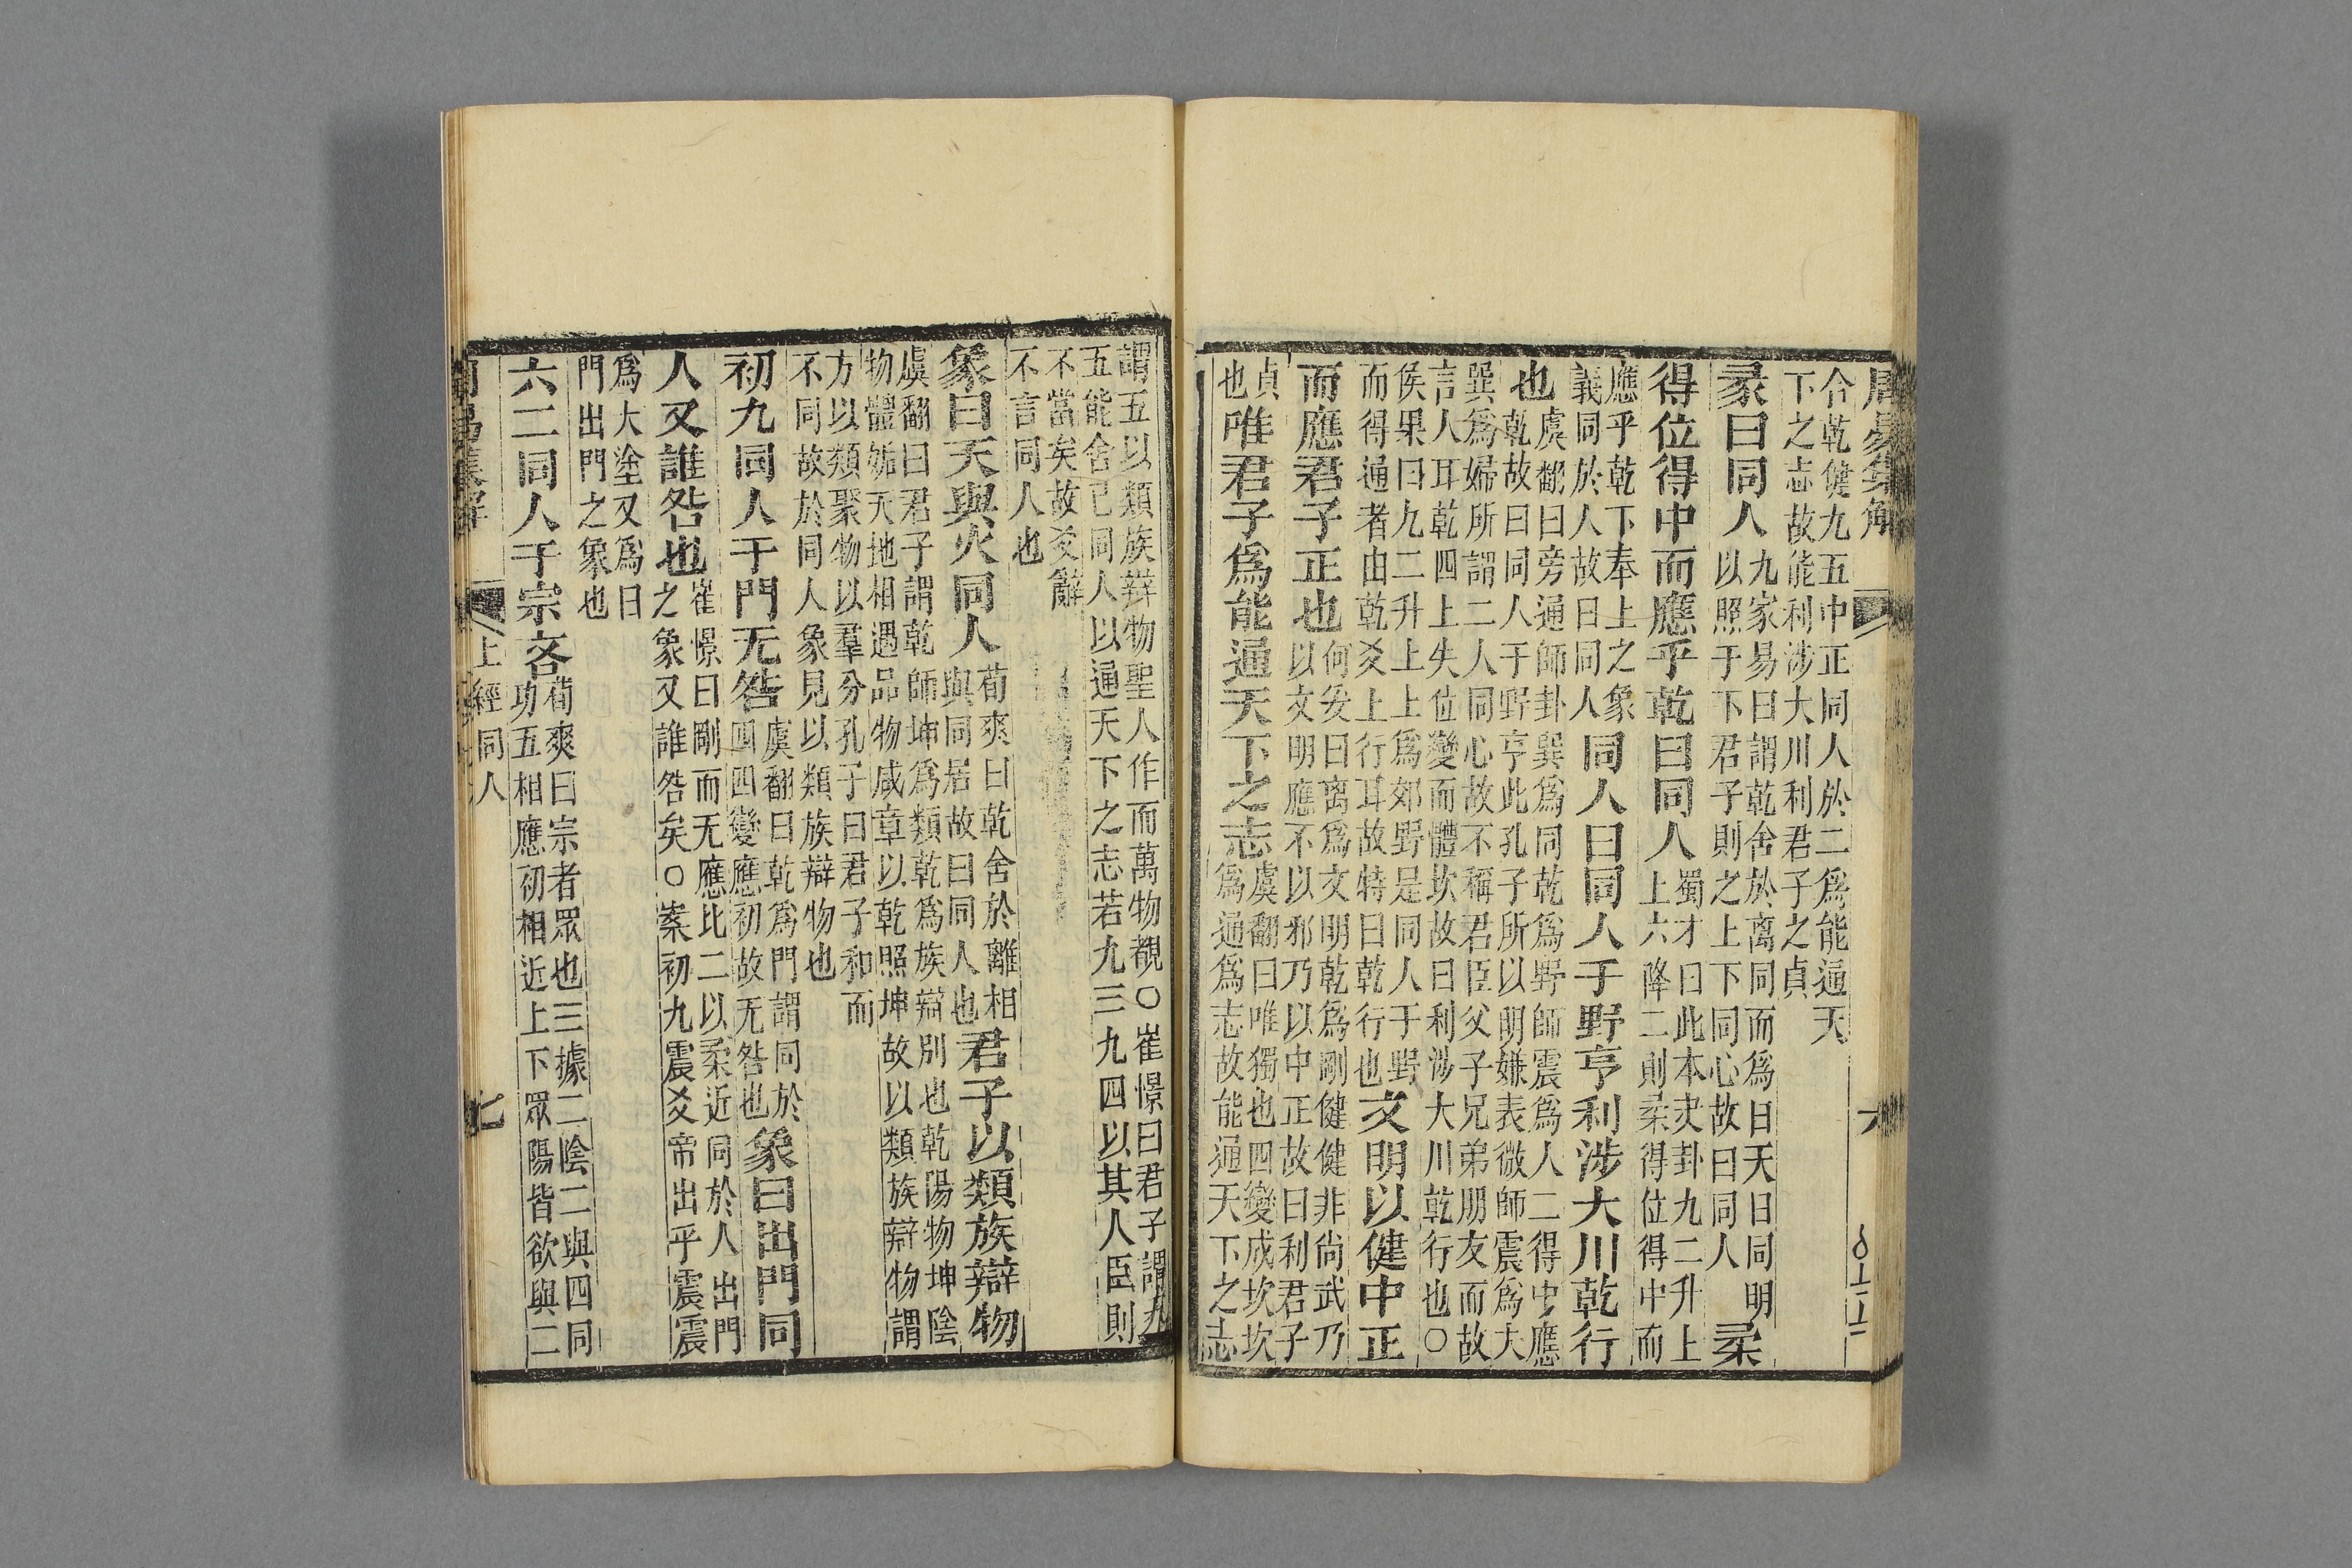 周易集解
六
合乾健九五中正同人於二爲能通天
下之志故能利涉大川利君子之貞
彖曰同人九家易曰謂乾舍於离同而爲日天日同明
以照于下君子則之上下同心故曰同人柔
得位得中而應乎乾曰同人蜀才曰此本夬卦九二升上
上六降二則柔得位得中而
應乎乾下奉上之象
義同於人故曰同人同人曰同人于野亨利涉大川乾行
也虞翻曰旁通師卦巽爲同乾爲野師震爲人二得中應
乾故曰同人于野亨此孔子所以明嫌表微師震爲夫
巽爲婦所謂二人同心故不稱君臣父子兄弟朋友而故
言人耳乾四上失位變而體坎故曰利涉大川乾行也○
侯果曰九二升上上爲郊野是同人于野
而得通者由乾爻上行耳故特曰乾行也文明以健中正
而應君子正也何妥曰离爲文明乾爲剛健健非尚武乃
以文明應不以邪乃以中正故曰利君子
貞
也唯君子爲能通天下之志虞翻曰唯獨也四變成坎坎
爲通爲志故能通天下之志
謂五以類族辯物聖人作而萬物覩○崔憬曰君子謂九
五能舍己同人以通天下之志若九三九四以其人臣則
不當矣故爻辭
不言同人也
象曰天與火同人荀爽曰乾舍於離相
與同居故曰同人也君子以類族辯物
虞翻曰君子謂乾師坤爲類乾爲族辯別也乾陽物坤陰
物體姤天地相遇品物咸章以乾照坤故以類族辯物謂
方以類聚物以羣分孔子曰君子和而
不同故於同人象見以類族辯物也
初九同人于門无咎虞翻曰乾爲門謂同於
四四變應初故无咎也象曰出門同
人又誰咎也崔憬曰剛而无應比二以柔近同於人出門
之象又誰咎矣○案初九震爻帝出乎震震
爲大塗又爲日
門出門之象也
六二同人于宗吝荀爽曰宗者眾也三據二陰二與四同
功五相應初相近上下眾陽皆欲與二
上經同人
七